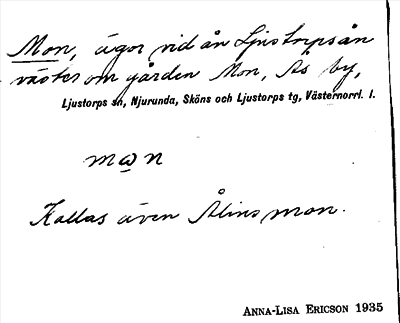 Mon, ägor vid ån Ljustorpsån
väster om gården Mon, Ås by,
Ljustorps sn, Njurunda, Sköns och Ljustorps tg, Västernorrl. l.
mωn
Kallas även Ålinsmon.
ANNA-LISA ERICSON 1935